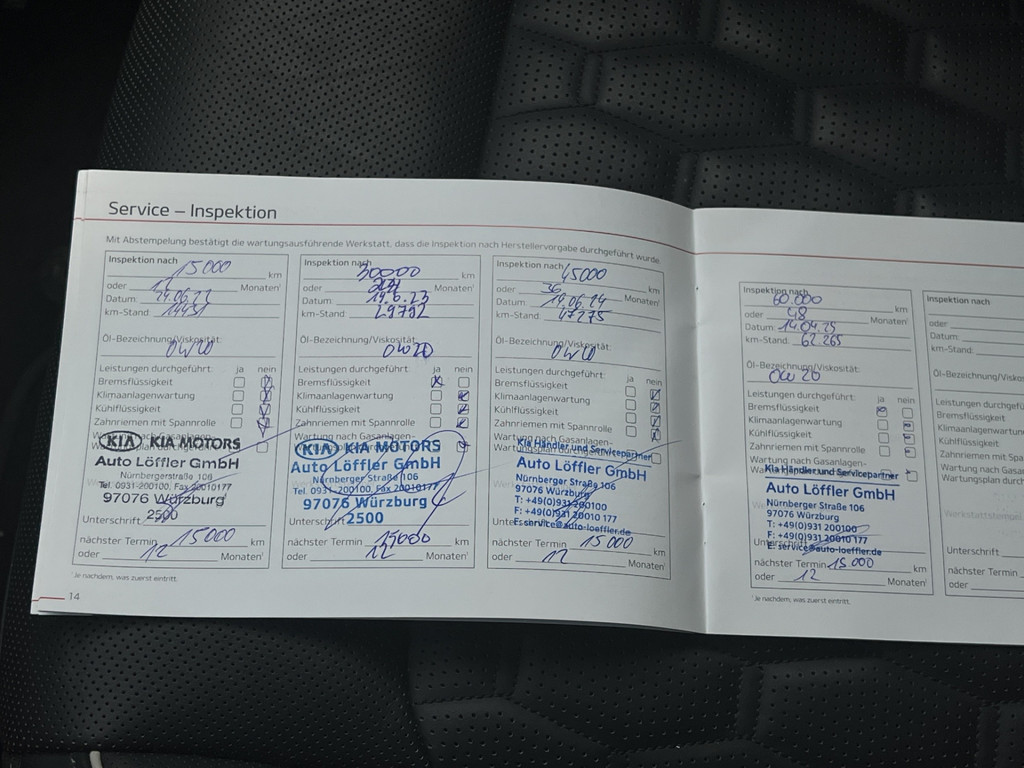 Service – Inspektion
Mit Abstempelung bestätigt die wartungsausführende Werkstatt, dass die Inspektion nach Herstellervorgabe durchgeführt wurde.
Inspektion nach 15000 km
oder 12 Monaten¹
Datum: 24.06.22
km-Stand:
Öl-Bezeichnung/Viskosität:
0W20
Leistungen durchgeführt: ja nein
Bremsflüssigkeit
Klimaanlagenwartung
Kühlflüssigkeit
Zahnriemen mit Spannrolle
KIA KIA MOTORS
Auto Löffler GmbH
Nürnbergerstraße 106
Tel. 0931-200100, Fax 20010177
97076 Würzburg
2500
Unterschrift
nächster Termin 15000 km
oder 12 Monaten¹
¹Je nachdem, was zuerst eintritt.
14
Inspektion nach 30000 km
oder Monaten¹
Datum: 14.6.23
km-Stand: 29792
Öl-Bezeichnung/Viskosität:
0W20
Leistungen durchgeführt: ja nein
Bremsflüssigkeit
Klimaanlagenwartung
Kühlflüssigkeit
Zahnriemen mit Spannrolle
Wartung nach Gasanlagen-
KIA KIA MOTORS
Auto Löffler GmbH
Nürnberger Straße 106
Tel. 0931-200100, Fax 20010177
97076 Würzburg
2500
Unterschrift
nächster Termin 15000 km
oder 12 Monaten¹
Inspektion nach 45000 km
oder 36 Monaten¹
Datum: 19.06.24
km-Stand: 47275
Öl-Bezeichnung/Viskosität:
0W20
Leistungen durchgeführt: ja nein
Bremsflüssigkeit
Klimaanlagenwartung
Kühlflüssigkeit
Zahnriemen mit Spannrolle
Wartung nach Gasanlagen-
Kia Händler und Servicepartner
Auto Löffler GmbH
Nürnberger Straße 106
97076 Würzburg
T: +49(0)931 200100
F: +49(0)931 20010 177
E: service@auto-loeffler.de
nächster Termin 15000 km
oder 12 Monaten¹
Inspektion nach 60.000 km
oder 48 Monaten¹
Datum: 14.04.25
km-Stand: 62.265
Öl-Bezeichnung/Viskosität:
0W20
Leistungen durchgeführt: ja nein
Bremsflüssigkeit
Klimaanlagenwartung
Kühlflüssigkeit
Zahnriemen mit Spannrolle
Wartung nach Gasanlagen-
Kia Händler und Servicepartner
Auto Löffler GmbH
Nürnberger Straße 106
97076 Würzburg
T: +49(0)931 200100
F: +49(0)931 20010 177
E: service@auto-loeffler.de
Unterschrift
nächster Termin 15000 km
oder 12 Monaten¹
¹Je nachdem, was zuerst eintritt.
Inspektion nach
oder
Datum:
km-Stand:
Öl-Bezeichnung/Visko
Leistungen durchgefü
Bremsflüssigkeit
Klimaanlagenwartun
Kühlflüssigkeit
Zahnriemen mit Spa
Wartung nach Gasan
Wartungsplan durch
Werkstattstempel
Unterschrift
nächster Termin
oder